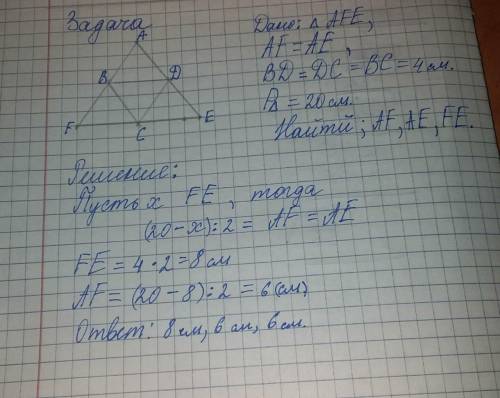 Задача
Дано: △ AFE,
AF = AE,
BD = DC = BC = 4 см.
P△ = 20 см.
Найти; AF, AE, FE.
A
B
D
F
C
E
Решение:
Пусть x FE, тогда
(20 - x) : 2 = AF = AE
FE = 4 · 2 = 8 см
AF = (20 - 8) : 2 = 6 (см)
Ответ: 8 см, 6 см, 6 см.